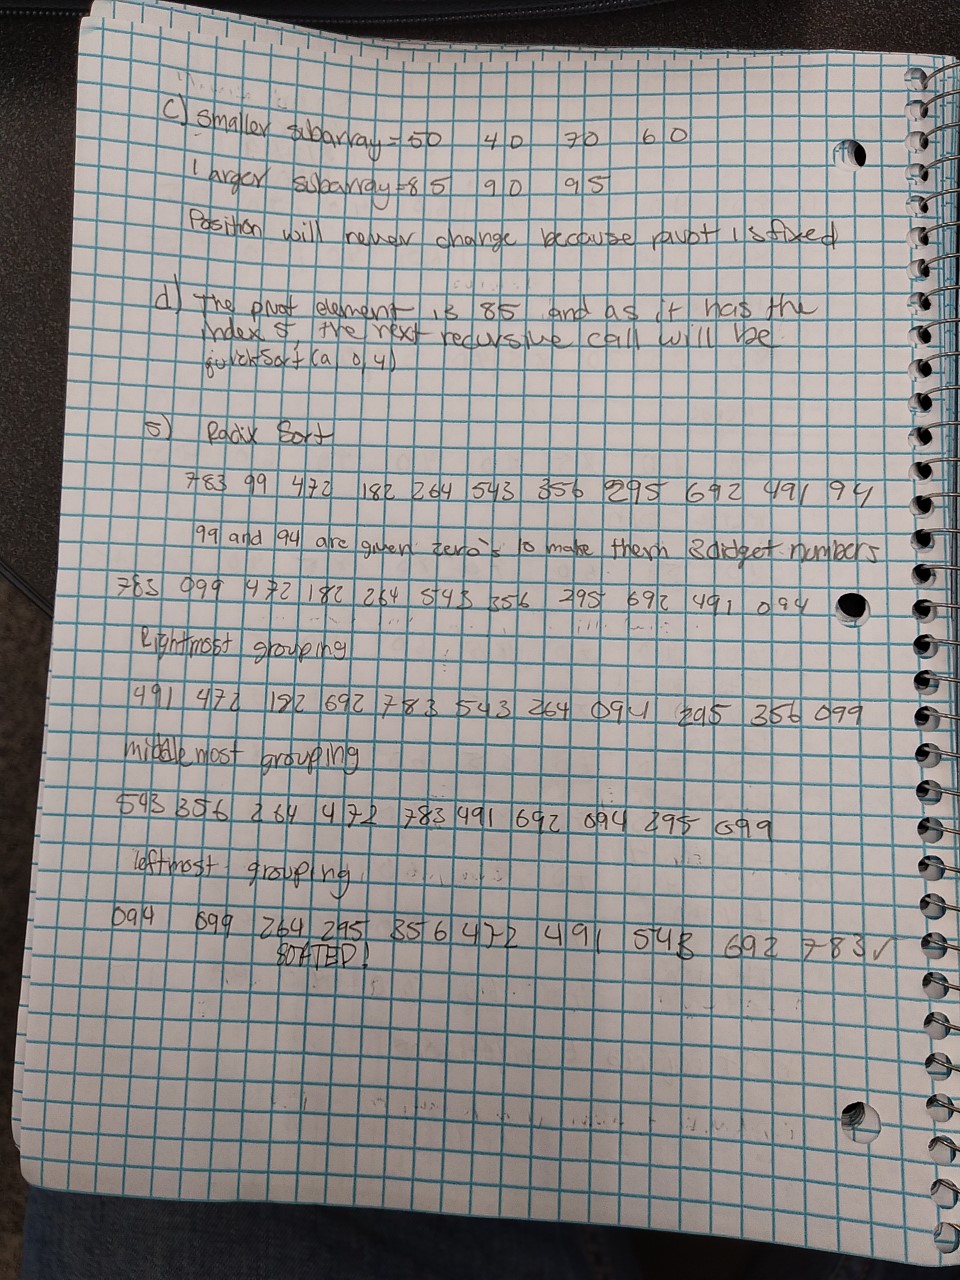 c) Smaller subarray = 50 40 70 60
larger subarray = 85 90 95
Position will never change because pivot is fixed
d) The pivot element is 85 and as it has the
index 5, the next recursive call will be
quickSort (a, 0, 4)
5) Radix Sort
783 99 472 182 264 543 356 295 692 491 94
99 and 94 are given zero's to make them 3 didget numbers
783 099 472 182 264 543 356 295 692 491 094
Rightmost grouping
491 472 182 692 783 543 264 094 295 356 099
middlemost grouping
543 356 264 472 783 491 692 094 295 099
leftmost grouping
094 099 264 295 356 472 491 543 692 783 ✓
SORTED!